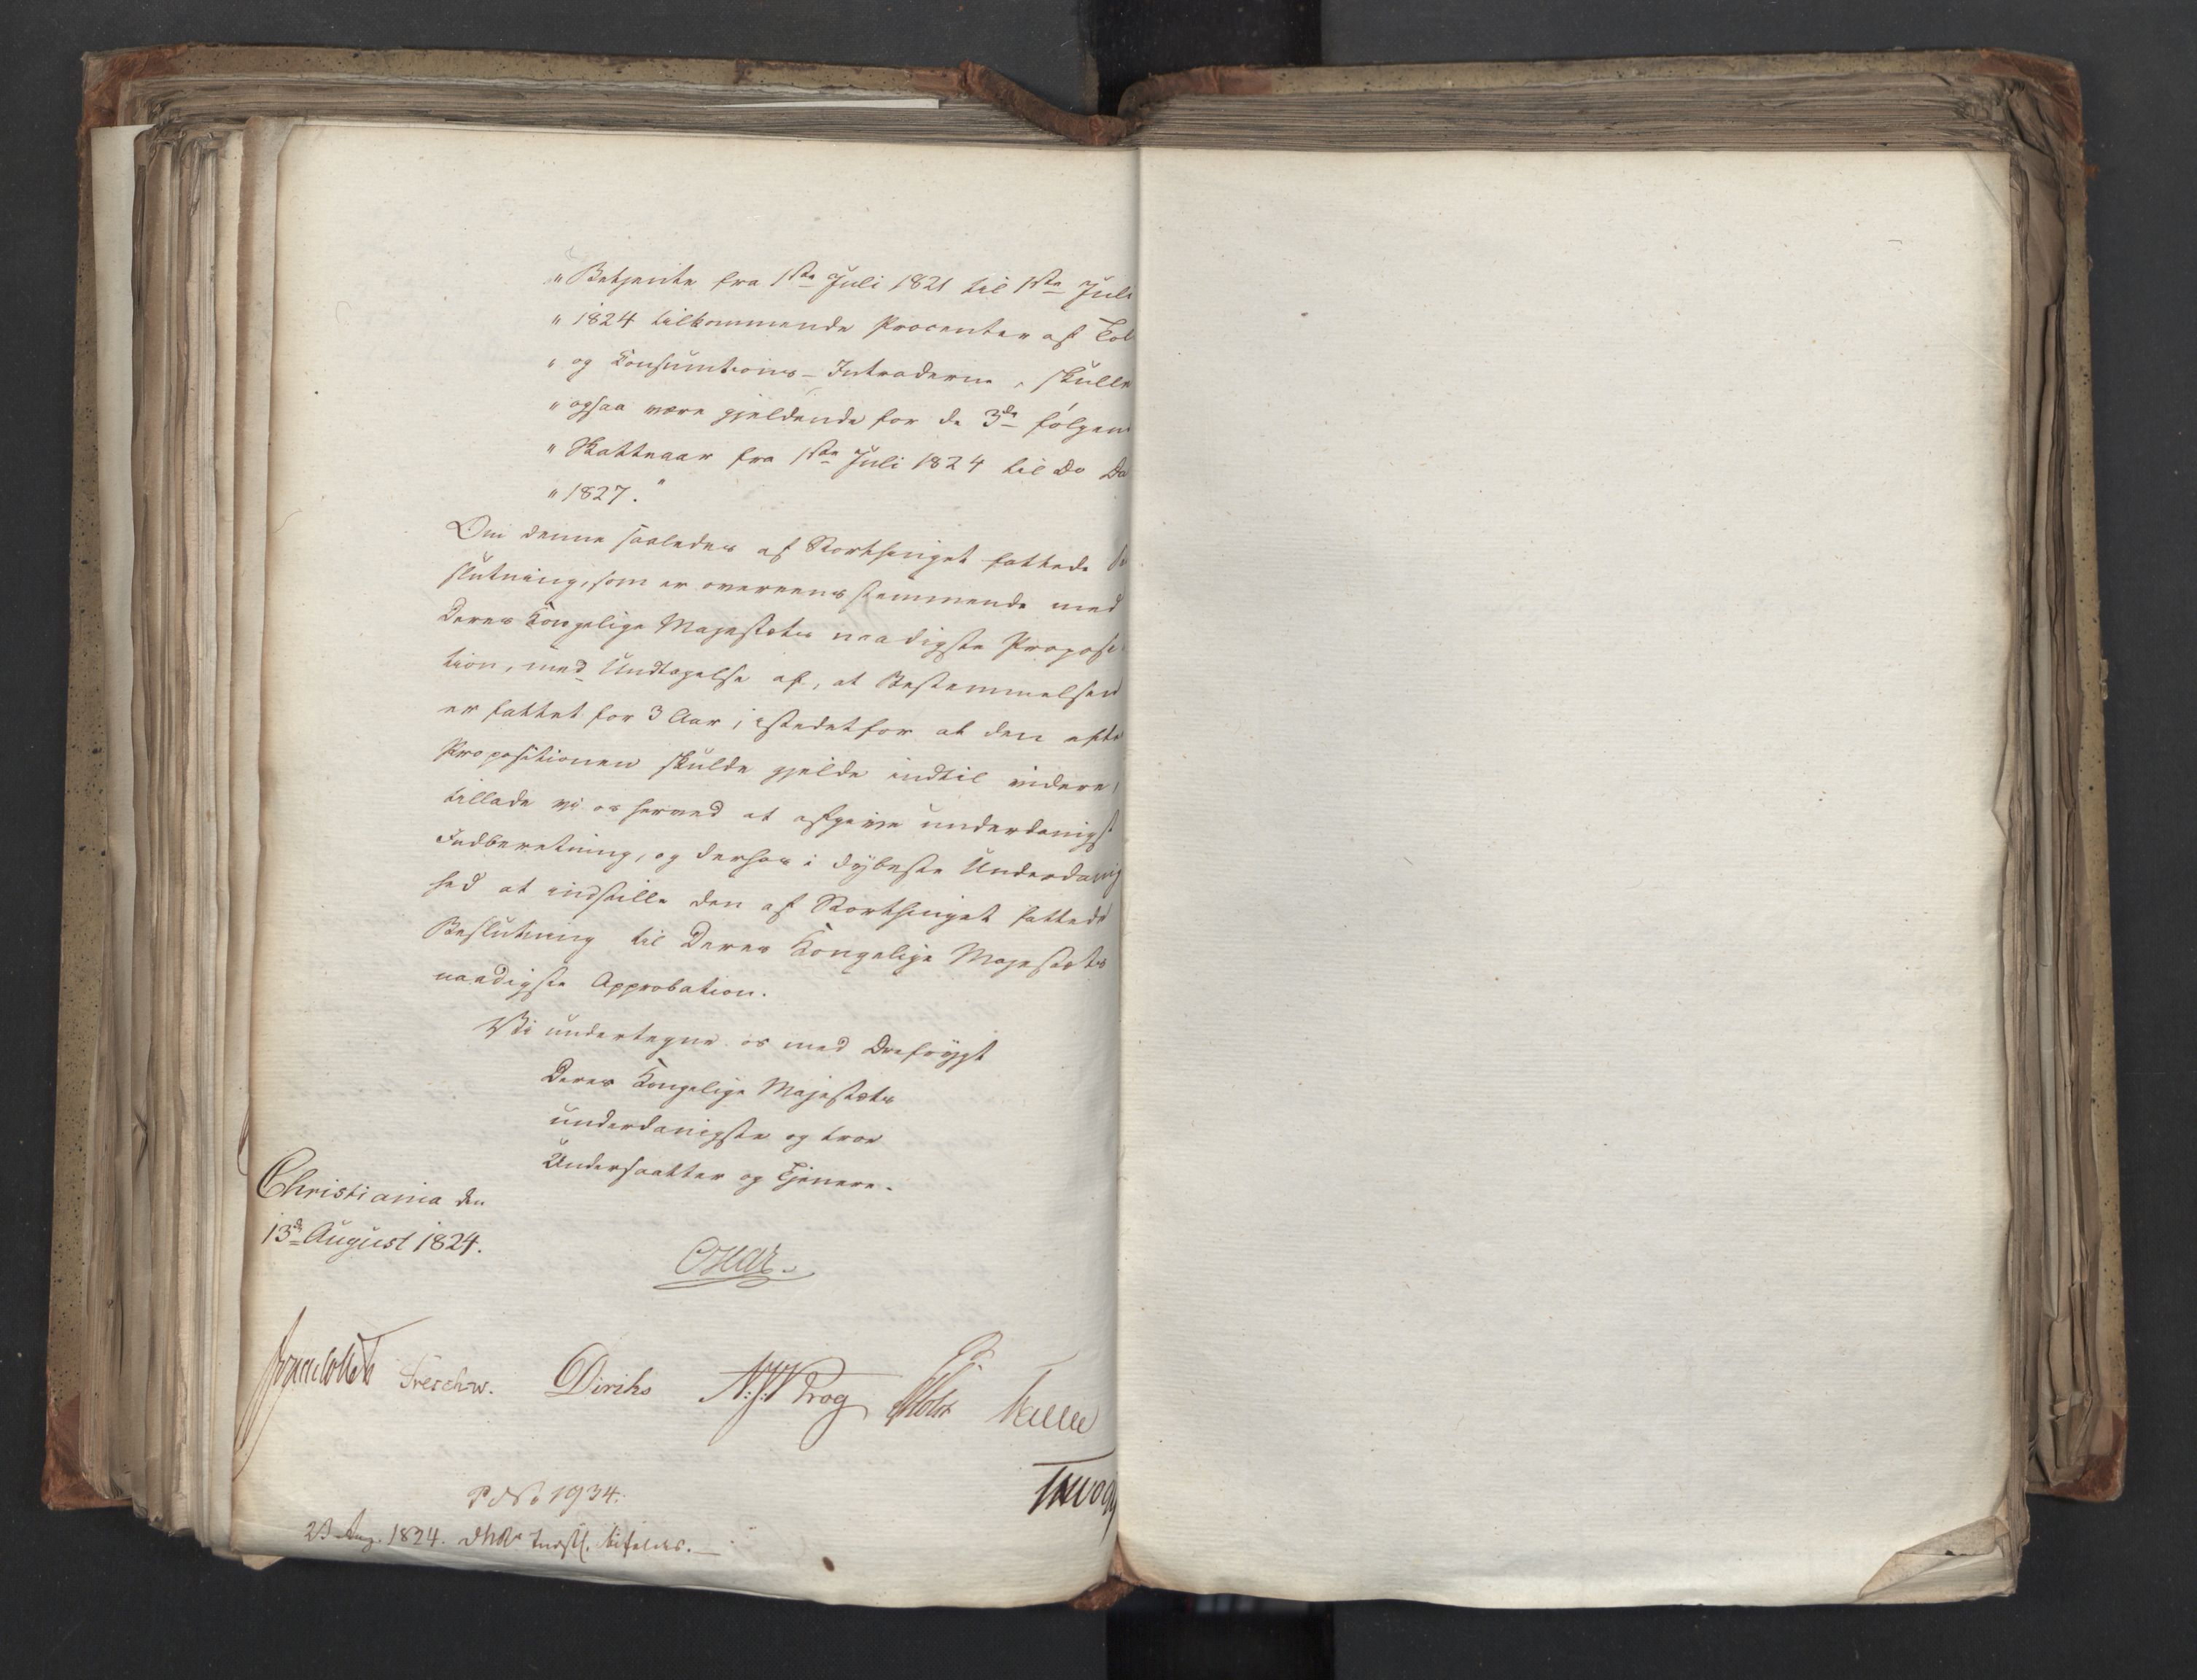 "Betjente fra 1ste Juli 1821 til 1ste Juli
"1824 tilkommende Procenter af Told
"og Konsumtions-Intraderne, skulle
"ogsaa være gjeldende for de 3de følgen
"Skatteaar fra 1ste Juli 1824 til Do Do
"1827."
Om denne saaledes af Storthinget fattede Be
slutning, som er overeensstemmende med
Deres Kongelige Majestæts naadigste Proposi
tion, med Undtagelse af, at Bestemmelsen
er fattet for 3 Aar, istedetfor at den efter
Propositionen skulde gjelde indtil videre,
tillade vi os herved at afgive underdanigst
Indberetning, og derhos i dybeste Underdanig
hed at indstille den af Storthinget fattede
Beslutning til Deres Kongelige Majestæts
naadigste Approbation.
Vi undertegne os med Drefrygt
Deres Kongelige Majestæts
underdanigste og troe
Undersaatter og Tjenere.
Christiania den
13de August 1824.
Jonas Collett Treschow. Diriks Holst
P No 1934.
23 Aug. 1824. Indst. bifaldes.